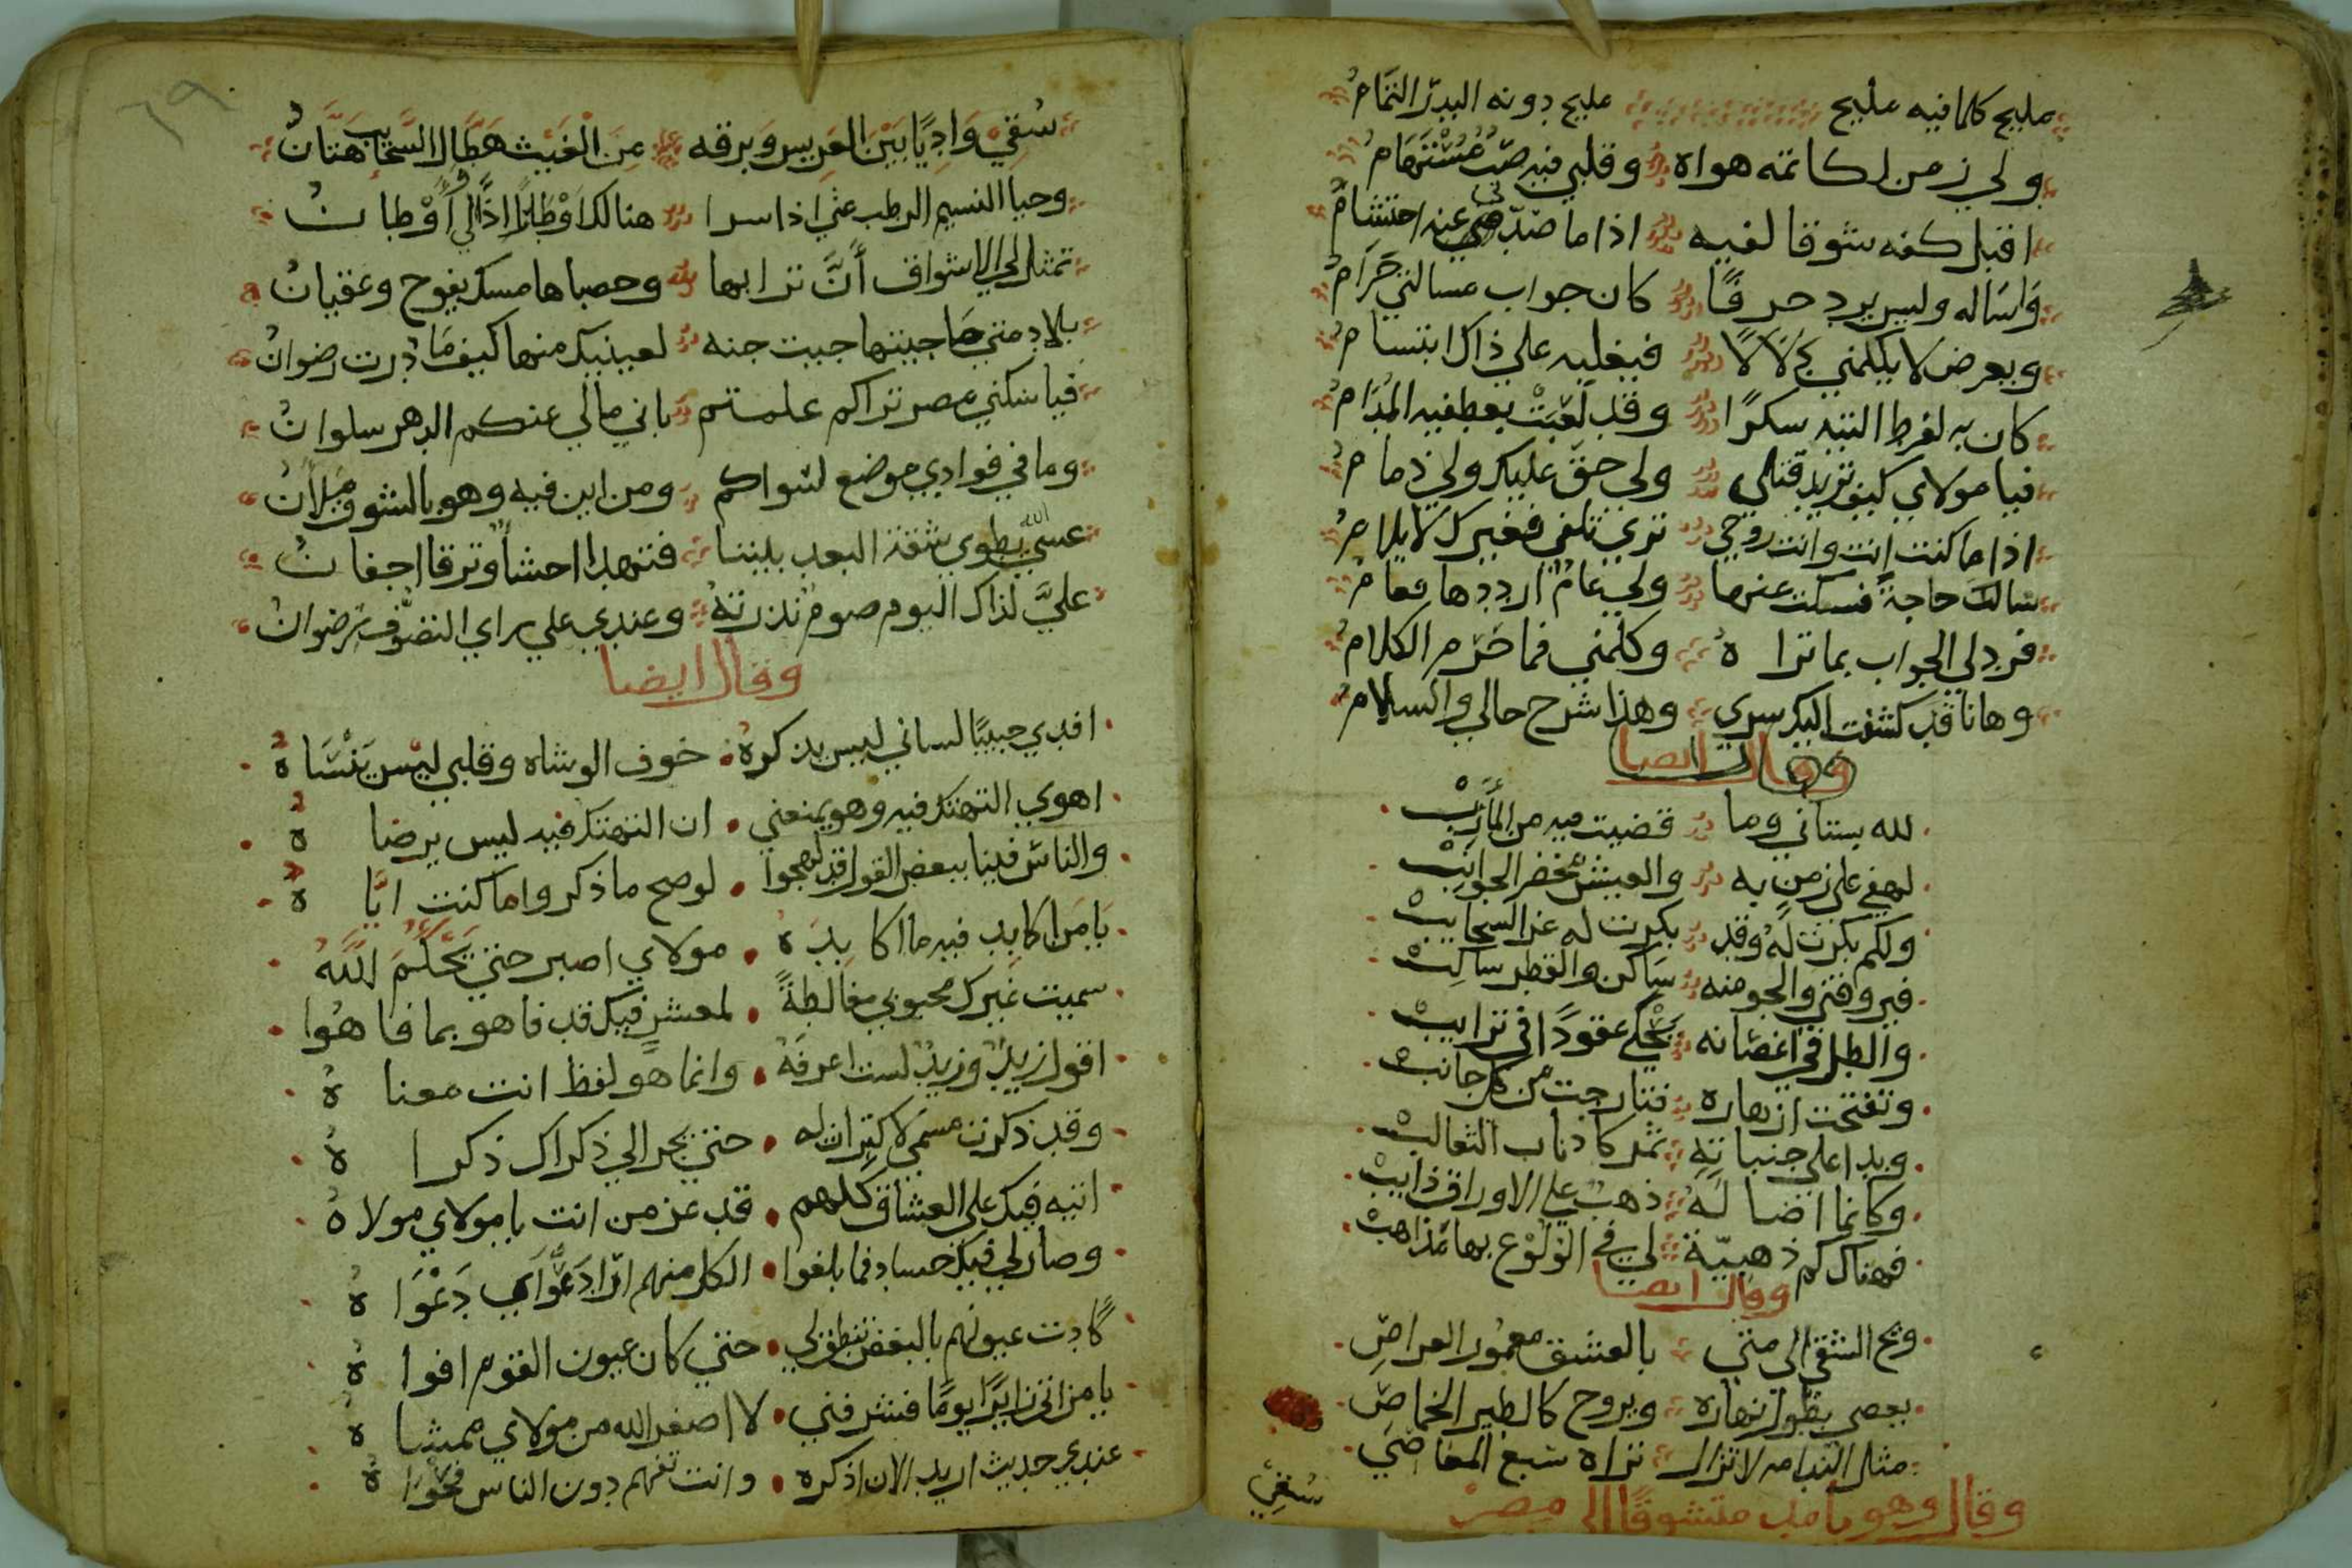 مليح كلما فيه مليح مليح دونه البدر التمام
ولي زمن اكاتمه هواه وقلبي فيه صب مستهام
اقبل كفه شوقا لفيه اذا ما صدني عنه احتشام
واساله وليس يرد حرفًا كان جواب مسالتي حرام
ويعرض لا يكلمني دلالًا فيغلبه علي ذاك ابتسام
كان به لفرط التيه سكرًا وقد لعبت بعطفيه المدام
فيا مولاي كيف تريد قتلي ولي حق عليك ولي ذمام
اذا ما كنت انت وانت روحي تري تلفي فغيرك لا يلام
سالتك حاجة فسكت عنها ولي عام ارددها وعام
فرد لي الجواب بما تراه وكلمني فما حرم الكلام
وها انا قد كشفت اليك سري وهذا شرح حالي والسلام
وقال ايضا
لله بستاني وما قضيت فيه من المأرب
لهفي علي زمن به والعيش مخضر الجوانب
ولكم بكرت له وقد بكرت له غر السحايب
فيروقني والجو منه ساكن والقطر ساكب
والطل في اغصانه يحكي عقودًا في ترايب
وتفتحت ازهاره فتارجت من كل جانب
وبدا علي جنباته ثمر كاذناب الثعالب
وكانما اضاله ذهب علي الاوراق ذايب
فهناك كم ذهبية لي في الولوع بها مذاهب
وقال ايضا
ويح الشقي الي متي بالعشق معمور العراص
يعصي بطول نهاره ويروح كالطير الخماص
مثل الندامه لا تزال تراه تبع المعاصي
وقال وهو بامد متشوقًا الي مصر
سقي
٦٩
سقي واديًا بين العريس وبرقه من الغيث هطال السحايب هتان
وحيا النسيم الرطب عني اذا سرا هنالك اوطانًا اذا لي اوطان
تمثل لي الاشواق أن ترابها وحصباها مسك يفوح وعقيان
بلاد متي ما جيتها جيت جنه لعينيك منها كيف ما درت رضوان
فيا ساكني مصر تراكم علمتم باني مالي عنكم الدهر سلوان
وما في فوادي موضع لسواكم ومن اين فيه وهو بالشوق ملأن
عسي الله يطوي شقة البعد بيننا فتهدا احشأ وترقا اجفان
علي لذاك اليوم صوم نذرته وعندي علي راي التصوف رضوان
وقال ايضا
افدي حبيبًا لساني ليس يذكره خوف الوشاه وقلبي ليس ينساه
اهوي التهتك فيه وهو يمنعني ان التهتك فيه ليس يرضاه
والناس فينا ببعض القول قد لهجوا لو صح ما ذكروا ما كنت اياه
يا من اكابد فيه ما اكابده مولاي اصبر حتي يحكم الله
سميت غيرك محبوبي مغالطةً لمعشر فيك قد فاهو بما فاهوا
اقول زيد وزيد لست اعرفه وانما هو لفظ انت معناه
وقد ذكرت مسمي لاكتراث له حتي يجر الي ذكراك ذكراه
اتيه فيك علي العشاق كلهم قد عز من انت يا مولاي مولاه
وصار لي فيك حساد فما بلغوا الكل منهم ادعوا في دعواه
كادت عيونهم بالبغض تنطق لي حتي كان عيون القوم افواه
يا من اتي زايرًا يومًا فشرفني لا اصغر الله من مولاي ممشاه
عندي حديث اريد الان اذكره وانت تفهم دون الناس فحواه